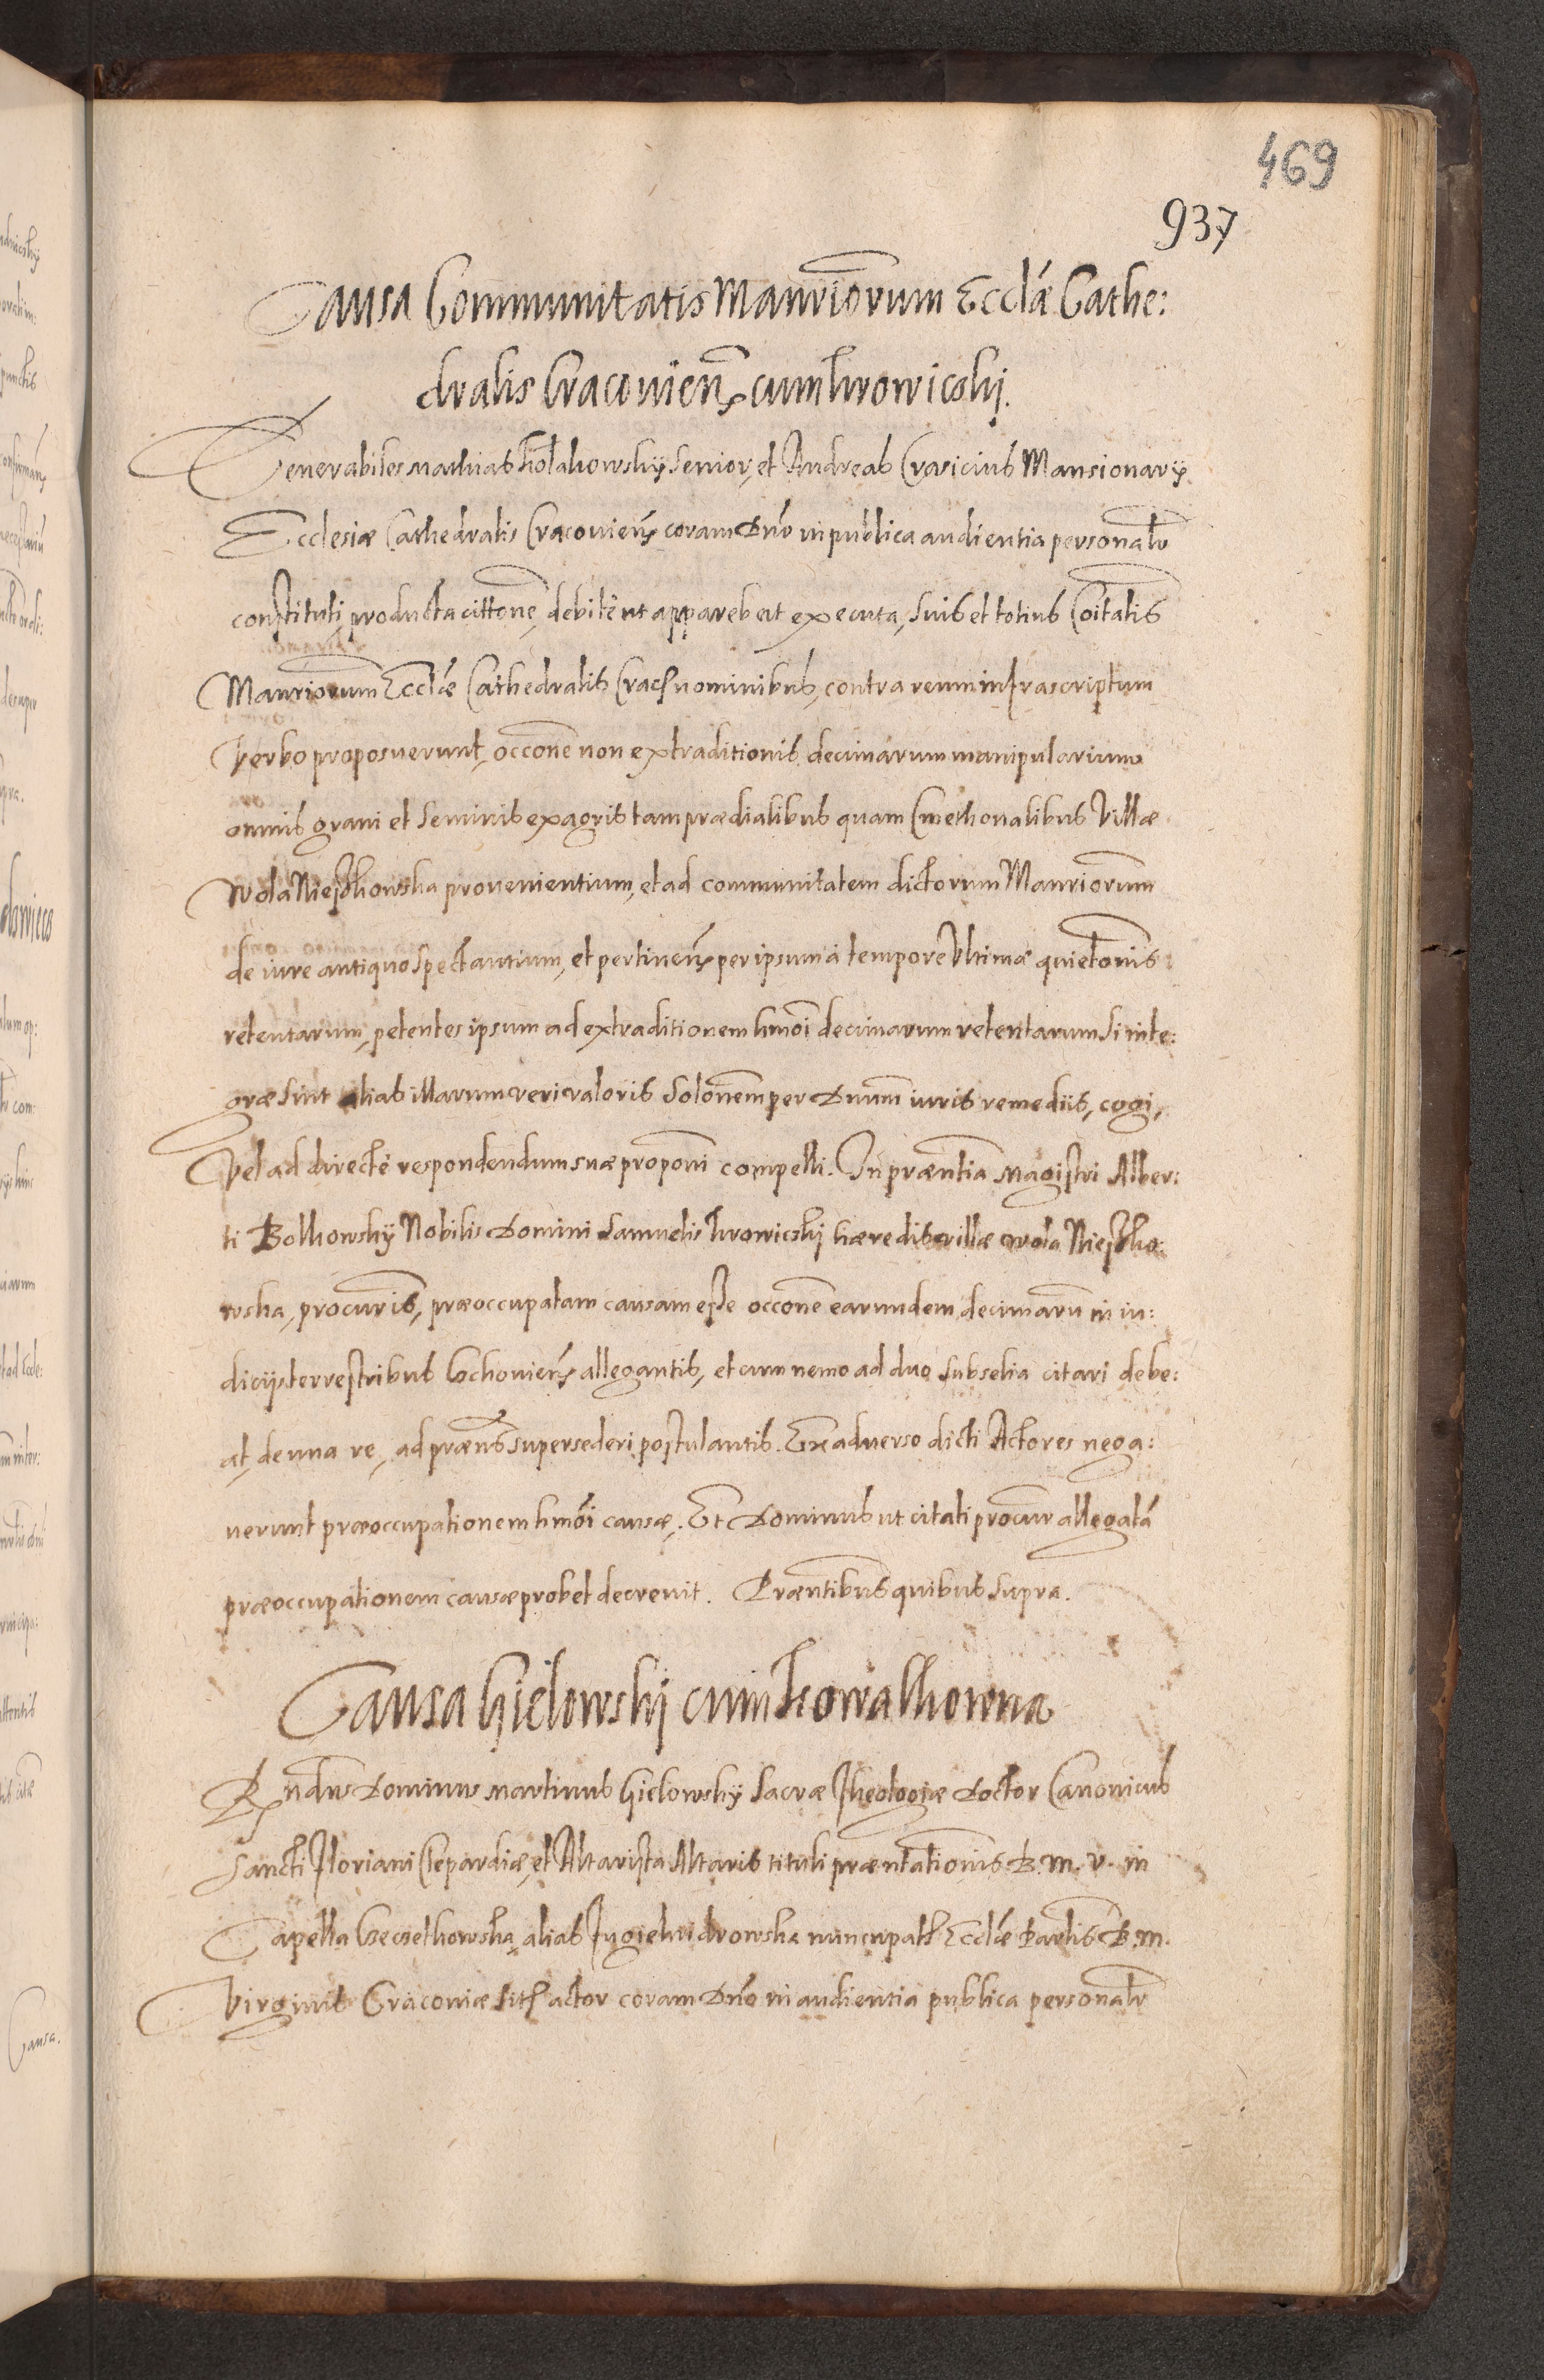 469
937
Causa Communitatis Manriorum Ecclae Cathe:
dralis Cracovien cum Krowicskj.
Venerabiles Mathias Kolakowskÿ Senior, et Andreas Crasicius Mansionarÿ
Ecclesiæ Cathedralis Cracovien coram Dno in publica audientia personalr
constituti, producta cittone, debite ut apparebat executa, suis et totius Coitatis
Manriorum Ecclæ Cathedralis Crac nominibus, contra reum infrascriptum
Verbo proposuerunt, occone non extraditionis decimarum manipularium
omnis grani et seminis ex agris tam prædialibus quam Cmethonalibus Villæ
Wola Nieskowska provenientium, et ad communitatem dictorum Manriorum
de iure antiquo spectantium, et pertinen per ipsum à tempore Ultimæ quietonis
retentarum, petentes ipsum ad extraditionem hmoi decimarum retentarum si inte:
græ sint alias illarum veri valoris solonem per Dnum iuris remediis, cogi,
Vel ad directè respondendum suæ proponi compelli. In præntia Magistri Alber:
ti Bolkowskÿ Nobilis Domini Samuelis Krowicskj hæredis villæ Wola Niesko:
wska, procuris, præoccupatam causam esse occone earundem decimaru in iu:
dicijs terrestribus Cchovien allegantis, et cum nemo ad duo subselia citari debe:
at, de una re, ad præns supersederi postulantis. Ex adverso dicti Actores nega:
verunt præoccupationem hmoi causæ. Et Dominus ut citati procur allegatã
præoccupationem causæ probet decrevit. Præntibus quibus supra.
Causa Gielowskj cum Kowalkowna
Rndus Dominus Martinus Gielowskÿ Sacræ Theologiæ Doctor Canonicus
Sancti Floriani Clepardiæ, et Altarista Altaris tituli præntationis B. M. V. in
Capella alias nuncupat Ecclæ Partis B. M.
Virginis Cracoviæ sit actor coram Dno in audientia publica personalr